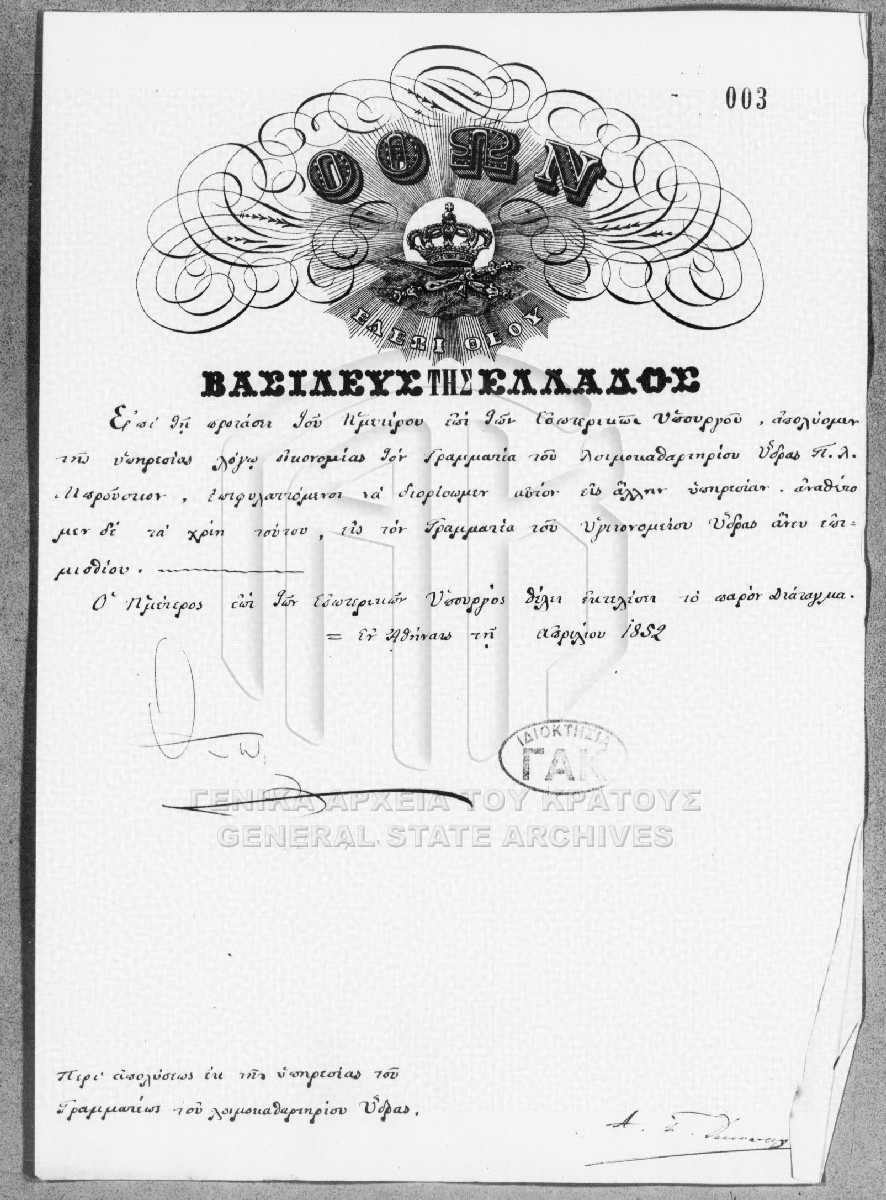 003
ΟΘΩΝ
ΕΛΕΩΙ ΘΕΟΥ
ΒΑΣΙΛΕΥΣ ΤΗΣ ΕΛΛΑΔΟΣ
Ἐπὶ τῇ προτάσει τοῦ Ἡμετέρου ἐπὶ τῶν Ἐσωτερικῶν Ὑπουργοῦ, ἀπολύομεν
τῆς ὑπηρεσίας λόγῳ οἰκονομίας τὸν Γραμματέα τοῦ Λοιμοκαθαρτηρίου Ὕδρας Π. Λ.
Μπρούστιον, ἐπιφυλαττόμενοι νὰ διορίσωμεν αὐτὸν εἰς ἄλλην ὑπηρεσίαν. ἀναθέτο
μεν δὲ τὰ χρέη τούτου, εἰς τὸν Γραμματέα τοῦ Ὑγειονομείου Ὕδρας ἄνευ ἐπι-
μισθίου.
Ὁ Ἡμέτερος ἐπὶ τῶν Ἐσωτερικῶν Ὑπουργὸς θέλει ἐκτελέσει τὸ παρὸν Διάταγμα.
= Ἐν Ἀθήναις τῇ Ἀπριλίου 1852
ΙΔΙΟΚΤΗΣΙΑ
ΓΑΚ
ΓΕΝΙΚΑ ΑΡΧΕΙΑ ΤΟΥ ΚΡΑΤΟΥΣ
GENERAL STATE ARCHIVES
Περὶ ἀπολύσεως ἐκ τῆς ὑπηρεσίας τοῦ
Γραμματέως τοῦ λοιμοκαθαρτηρίου Ὕδρας.